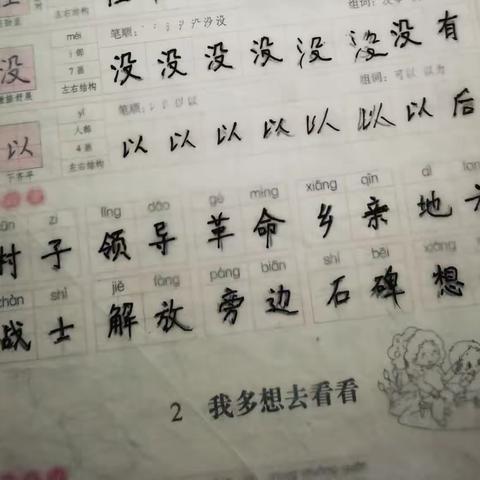 左右结构
méi
氵部
7画
左右结构
没
笔顺:
没 没 没 没 没 没 没 有
yǐ
人部
4画
左右结构
以
下齐平
笔顺:
组词:可以 以为
以 以 以 以 以 以 以 后
zi lǐng dǎo gé mìng xiāng qīn dì
村 子 领 导 革 命 乡 亲 地
zhàn shì jiě fàng páng biān shí bēi xiǎng
战 士 解 放 旁 边 石 碑 想
2 我多想去看看